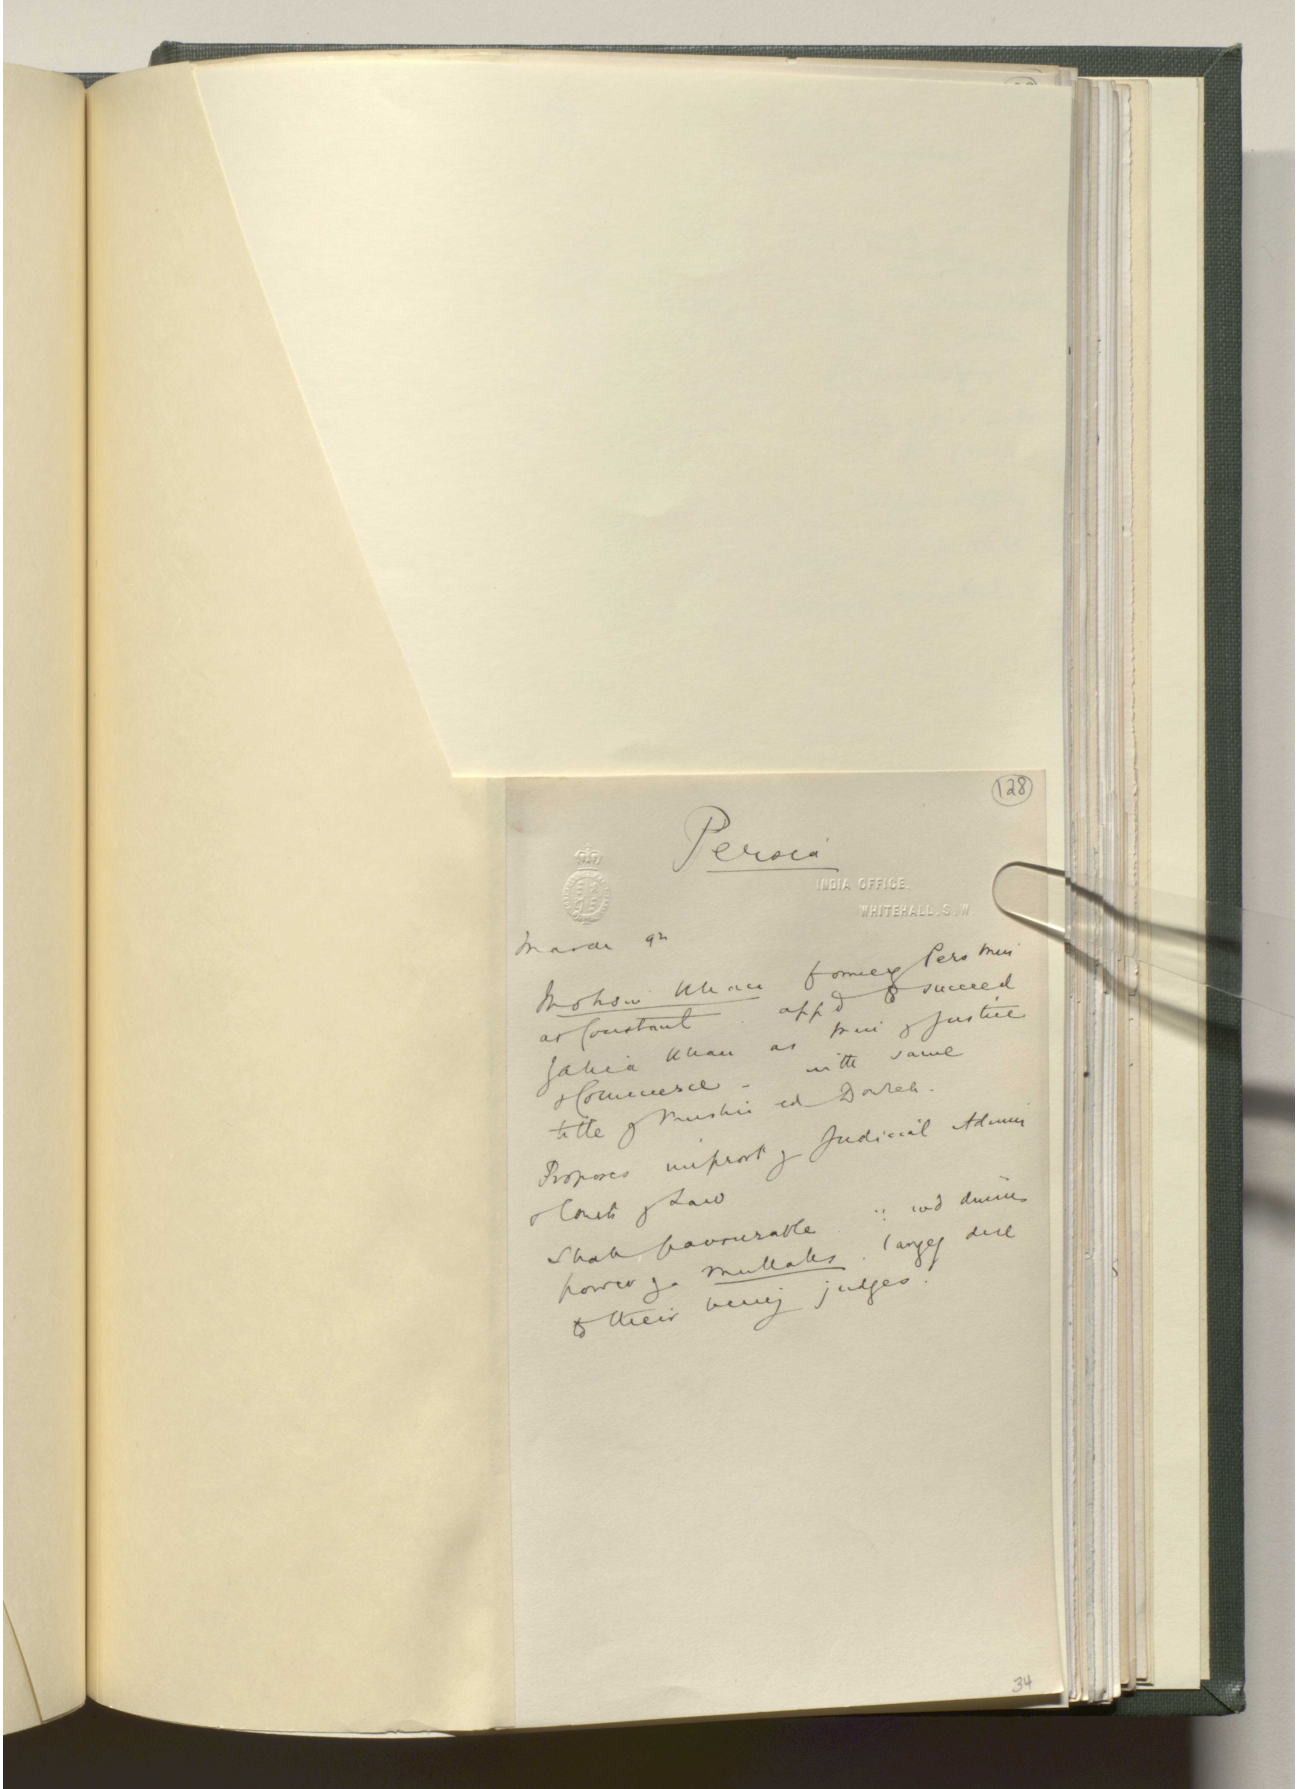 128
Persia
INDIA OFFICE,
WHITEHALL. S. W
March 92
Mohsin Khan formerly Pers Min
at Constant. appd to succeed
Yahia Khan as Min of Justice
& Commerce - with same
title of Mushir ed Dowleh.
Proposes improvt of Judicial Admin
& Courts of Law
Shah favourable ∵ wd dimin
power of Mullahs. largely due
to their being judges.
34